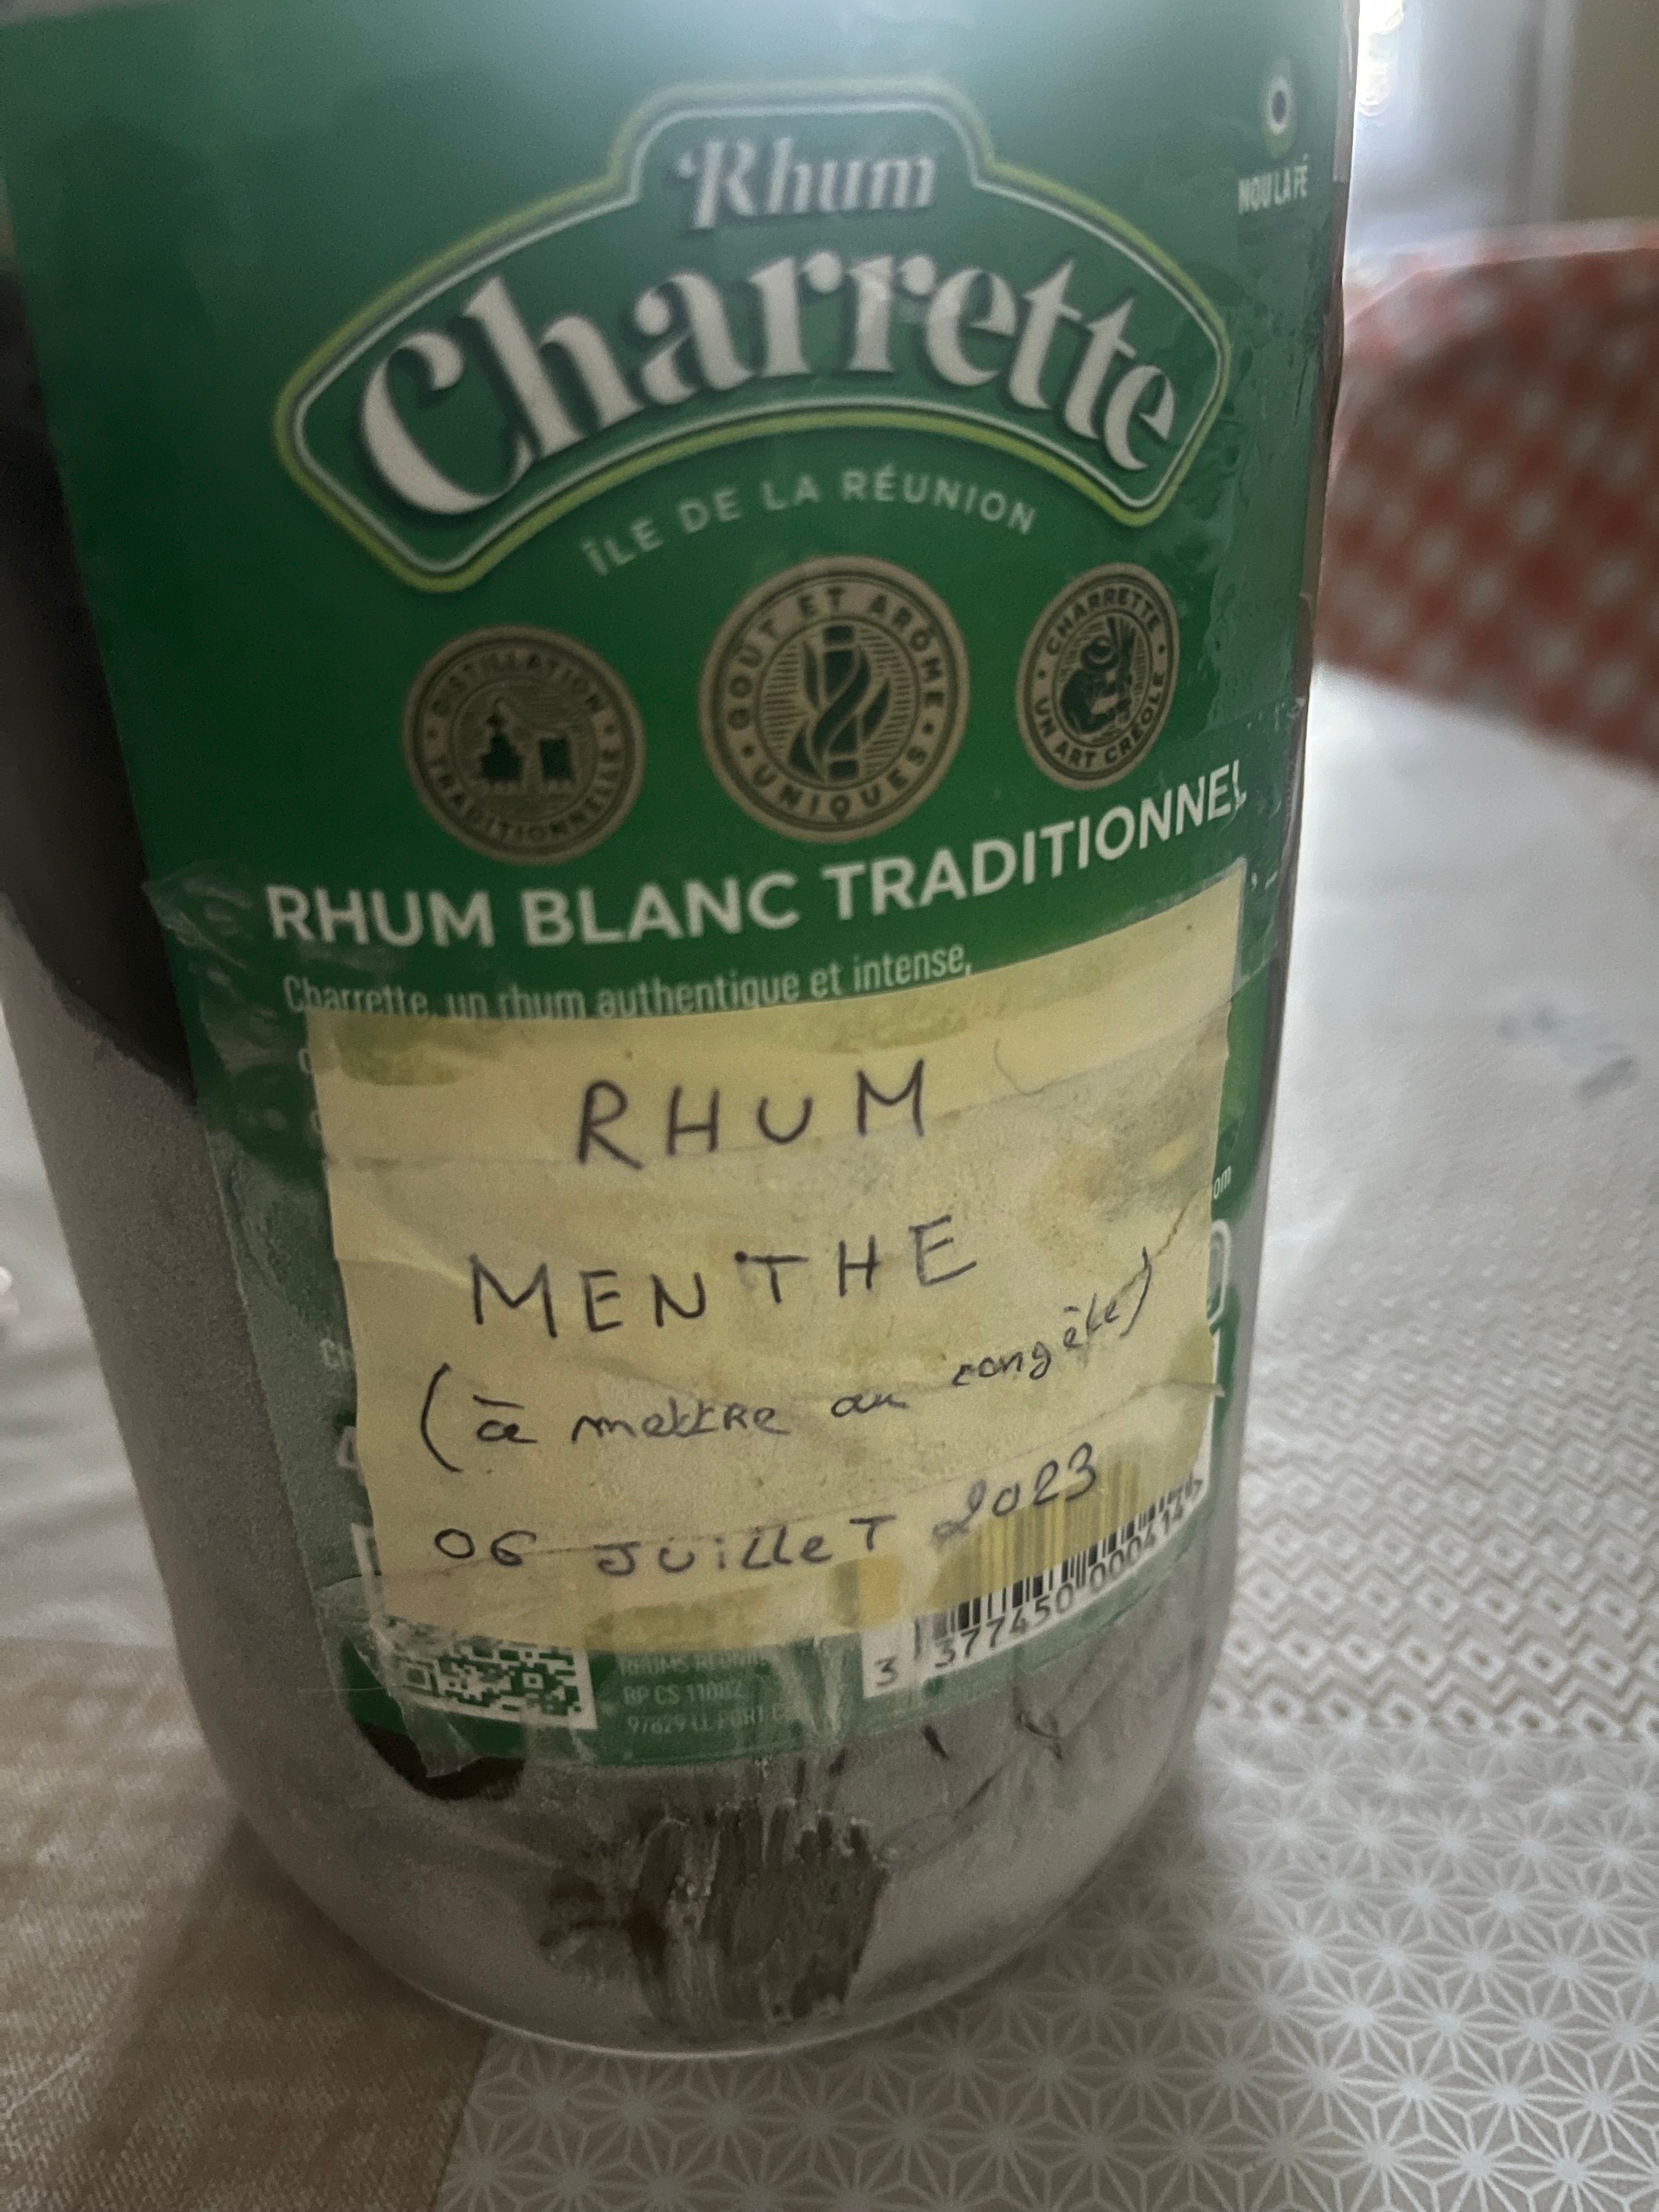 NOU LA FÉ
Rhum
Charrette
ÎLE DE LA RÉUNION
DISTILLATION TRADITIONNELLE
GOUT ET ARÔME UNIQUES
CHARRETTE UN ART CRÉOLE
RHUM BLANC TRADITIONNEL
Charrette, un rhum authentique et intense,
RHUM
MENTHE
(à mettRe au congèle)
06 JUilleT 2023
om
3 377450 000414
RHUMS RÉUNION
BP CS 11082
97829 LE PORT C